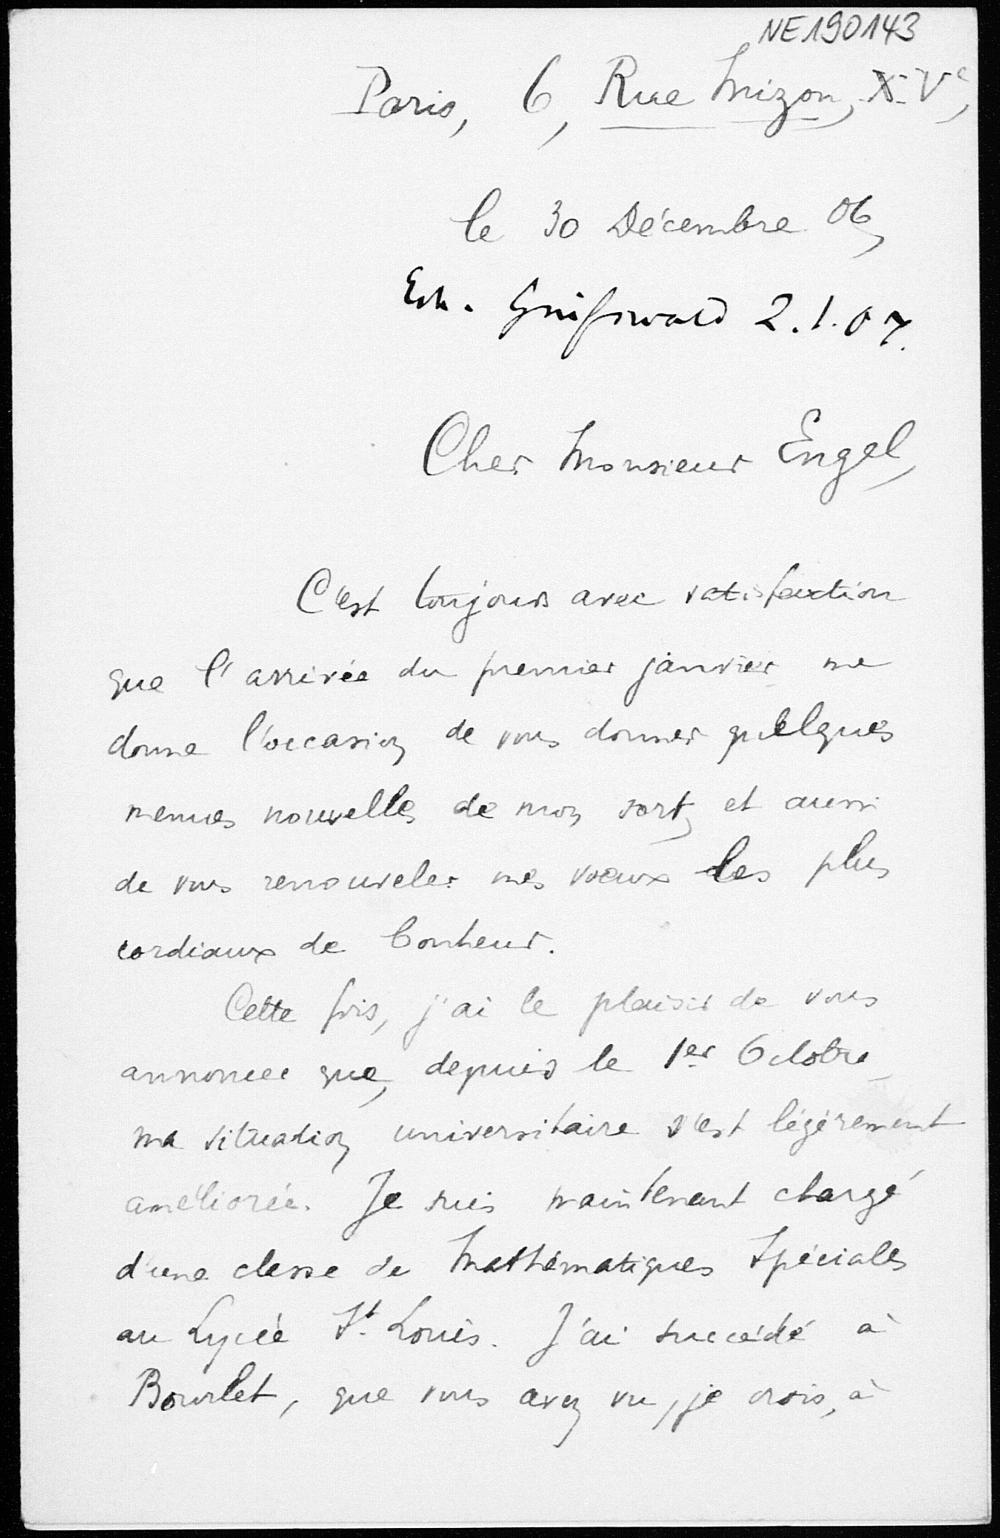 NE190143
Paris, 6, Rue Mizon, XVe,
le 30 Décembre 06,
Erh. Greifswald 2.1.07.
Cher Monsieur Engel,
C'est toujours avec satisfaction
que l'arrivée du premier janvier me
donne l'occasion de vous donner quelques
menues nouvelles de mon sort, et aussi
de vous renouveler mes vœux les plus
cordiaux de bonheur.
Cette fois, j'ai le plaisir de vous
annoncer que, depuis le 1er Octobre,
ma situation universitaire s'est légèrement
améliorée. Je suis maintenant chargé
d'une classe de Mathématiques Spéciales
au Lycée St. Louis. J'ai succédé à
Bourlet, que vous avez vu, je crois, à